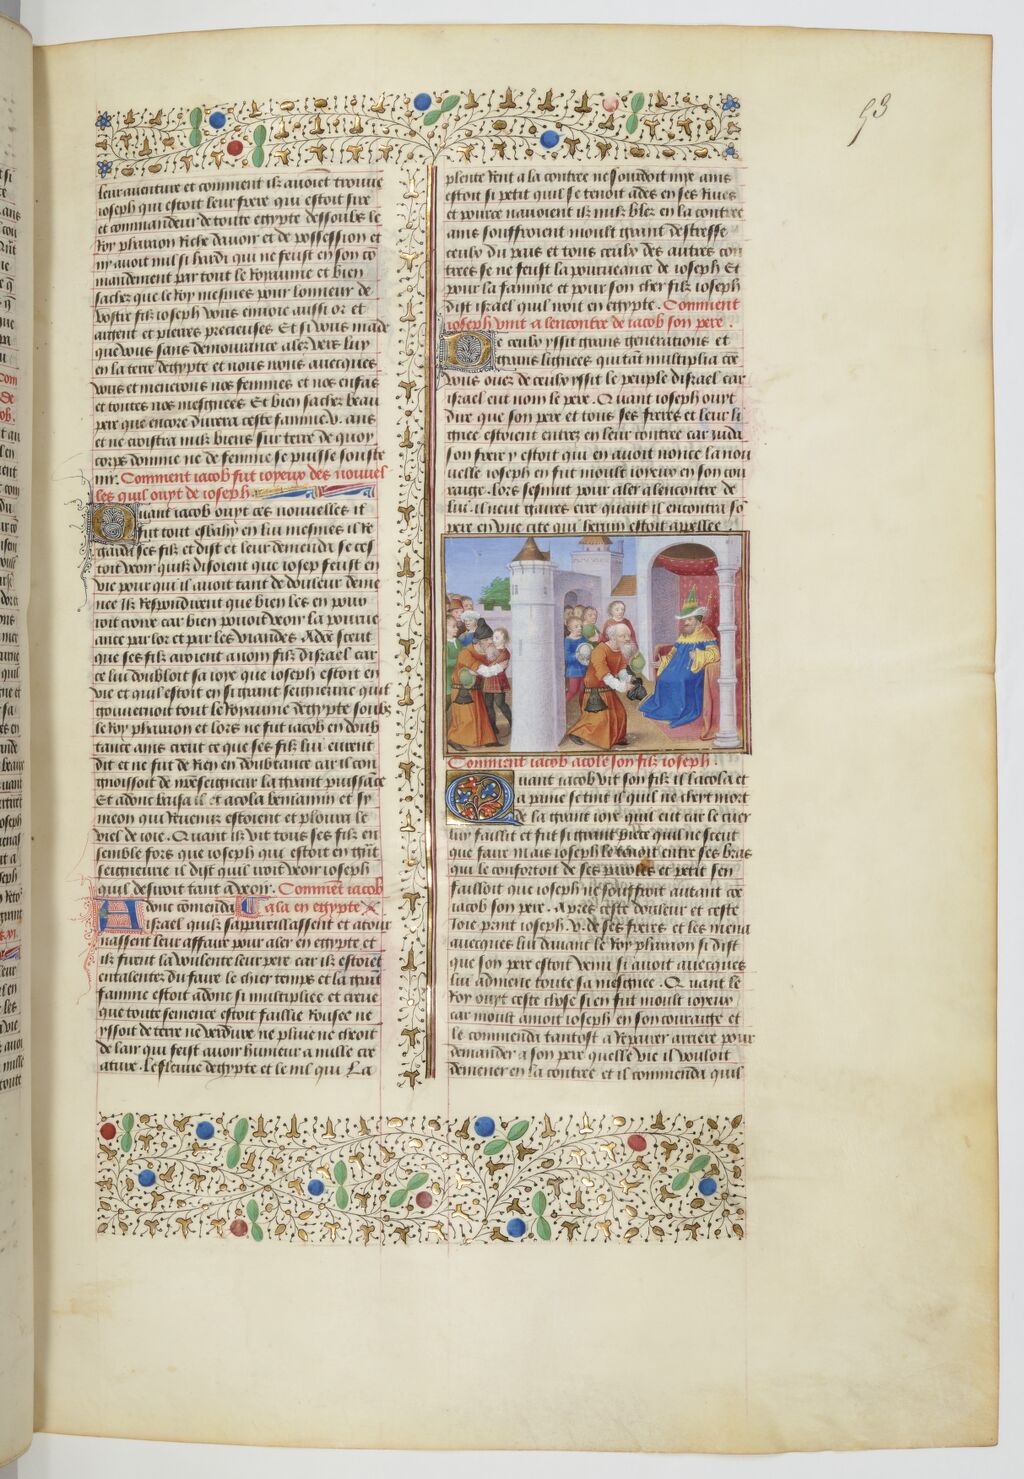 93
leur aventure et comment ilz avoiēt trouve
ioseph qui estoit leur frere qui estoit sire
et commandeur de toute egypte dessoubz le
Roy pharaon Riche davoir et de possession et
ny avoit nul si hardi qui ne feust en son cō
mandement par tout le Royaume et bien
sachez que le Roy mesmes pour lonneur de
vostre filz ioseph vous envoie aussi or et
argent et pierres precieuses Et si vous mãde
que vous sans demourance alez vers luy
en la terre degypte et nous vous avecques
vous et menrons nos femmes et nos enfãs
et toutes nos mesgnees Et bien sachez beau
pere que encore durera ceste famine v. ans
et ne croistra nulz biens sur terre de quoy
corps domme ne de femme se puisse souste
nir. Comment iacob fut ioyeux des nouvel
les quil ouyt de ioseph
Quant iacob ouyt ces nouvelles il
fut tout esbahy en lui mesmes il Re
garda ses filz et dist et leur demanda se ces
toit voir quilz disoient que iosep feust en
vie pour qui il avoit tant de douleur deme
nee Ilz Respondirent que bien les en pouv
oit croire car bien pouoit veoir la pourve
ance par lor et par les viandes Adōc sceut
que ses filz avoient a nom filz disrael car
ce lui doubloit sa ioye que ioseph estoit en
vie et quil estoit en si grant seigneurie quil
gouvernoit tout le Royaume degypte soubz
le Roy pharaon et lors ne fut iacob en doub
tance ains creut ce que ses filz lui eurent
dit et ne fut de Rien en doubtance car il con
gnoissoit de nreseigneur la grant puissāce
Et adonc baisa il et acola beniamin et sy
meon qui Revenuz estoient et ploura le
viel de ioie. Quant il vit tous ses filz en
semble fors que ioseph qui estoit en grāt
seigneurie il dist quil iroit veoir ioseph
quil desiroit tant a veoir. Commēt iacob
Adonc cōmenda ala en egypte
israel quilz sappareillassent et atour
nassent leur affaire pour aler en egypte et
ilz firent la voulente leur pere car ilz estoiēt
entalentez du faire le chier temps et la grāt
famine estoit adonc si multipliee et creue
que toute semence estoit faillie Rousee ne
yssoit de terre ne verdure ne pluie ne cheoit
de lair qui feist avoir humeur a nulle cre
ature. Le fleuve degypte et le nil qui La
plente Rent a la contre ne sourdoit mye ains
estoit si petit quil se tenoit adēs en ses Rives
et pource navoient ilz nulz blez en la contree
ains souffroient moult grant destresse
ceulx du pais et tous ceulx des autres con
trees se ne feust la pourveance de ioseph Et
pour la famine et pour son chier filz ioseph
dist israel quil iroit en egypte. Comment
ioseph vint a lencontre de iacob son pere.
De ceulx yssit grans generations et
grans lignees qui tāt multiplia cōe
vous ouez de ceulx yssit le peuple disrael car
israel eut nom le pere. Quant ioseph ouyt
dire que son pere et tous ses freres et leur li
gnee estoient entrez en leur contree car iuda
son frere y estoit qui en avoit nonce la nou
velle ioseph en fut moult ioyeux en son cou
raige. lors sesmut pour aler alencontre de
lui. il neut gaires erre quant il encontra sō
pere en vne cite qui bersin estoit appellee.
Comment iacob acole son filz ioseph.
Quant iacob vit son filz il lacola et
a paine se tint il quil ne cheyt mort
de la grant ioye quil eut car le cuer
luy faillit et fut si grant piece quil ne sceut
que faire mais ioseph le tenoit entre ses bras
qui le confortoit de ses parolles et petit sen
failloit que ioseph ne souffroit autant cōe
iacob son pere. Apres ceste douleur et ceste
ioie print ioseph .v. de ses freres et les mena
avecques lui devant le Roy pharaon si dist
que son pere estoit venu si avoit avecques
lui admene toute sa mesgnee. Quant le
Roy ouyt ceste chose si en fut moult ioyeux
car moult amoit ioseph en son couraige et
le commenda tantost a Repairer arriere pour
demander a son pere quelle vie il vouloit
demener en la contree et il commenda quil